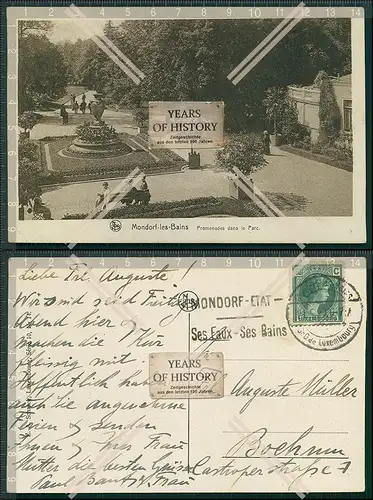 YEARS
OF HISTORY
Zeitgeschichte
aus den letzten 100 Jahren
Mondorf-les-Bains Promenades dans le Parc.
Liebe Frl. Auguste!
Wir sind seit Freitag
Abend hier u.
machen die Kur
fleissig mit.
Hoffentlich haben
auch Sie angenehme
Ferien u. senden
Ihnen u. Ihrer Frau
Mutter die besten Grüsse
Paul
u. Frau
MONDORF-ETAT
Ses Eaux - Ses Bains
YEARS
OF HISTORY
Zeitgeschichte
aus den letzten 100 Jahren
Auguste Müller
Bochum
Castroper strasse